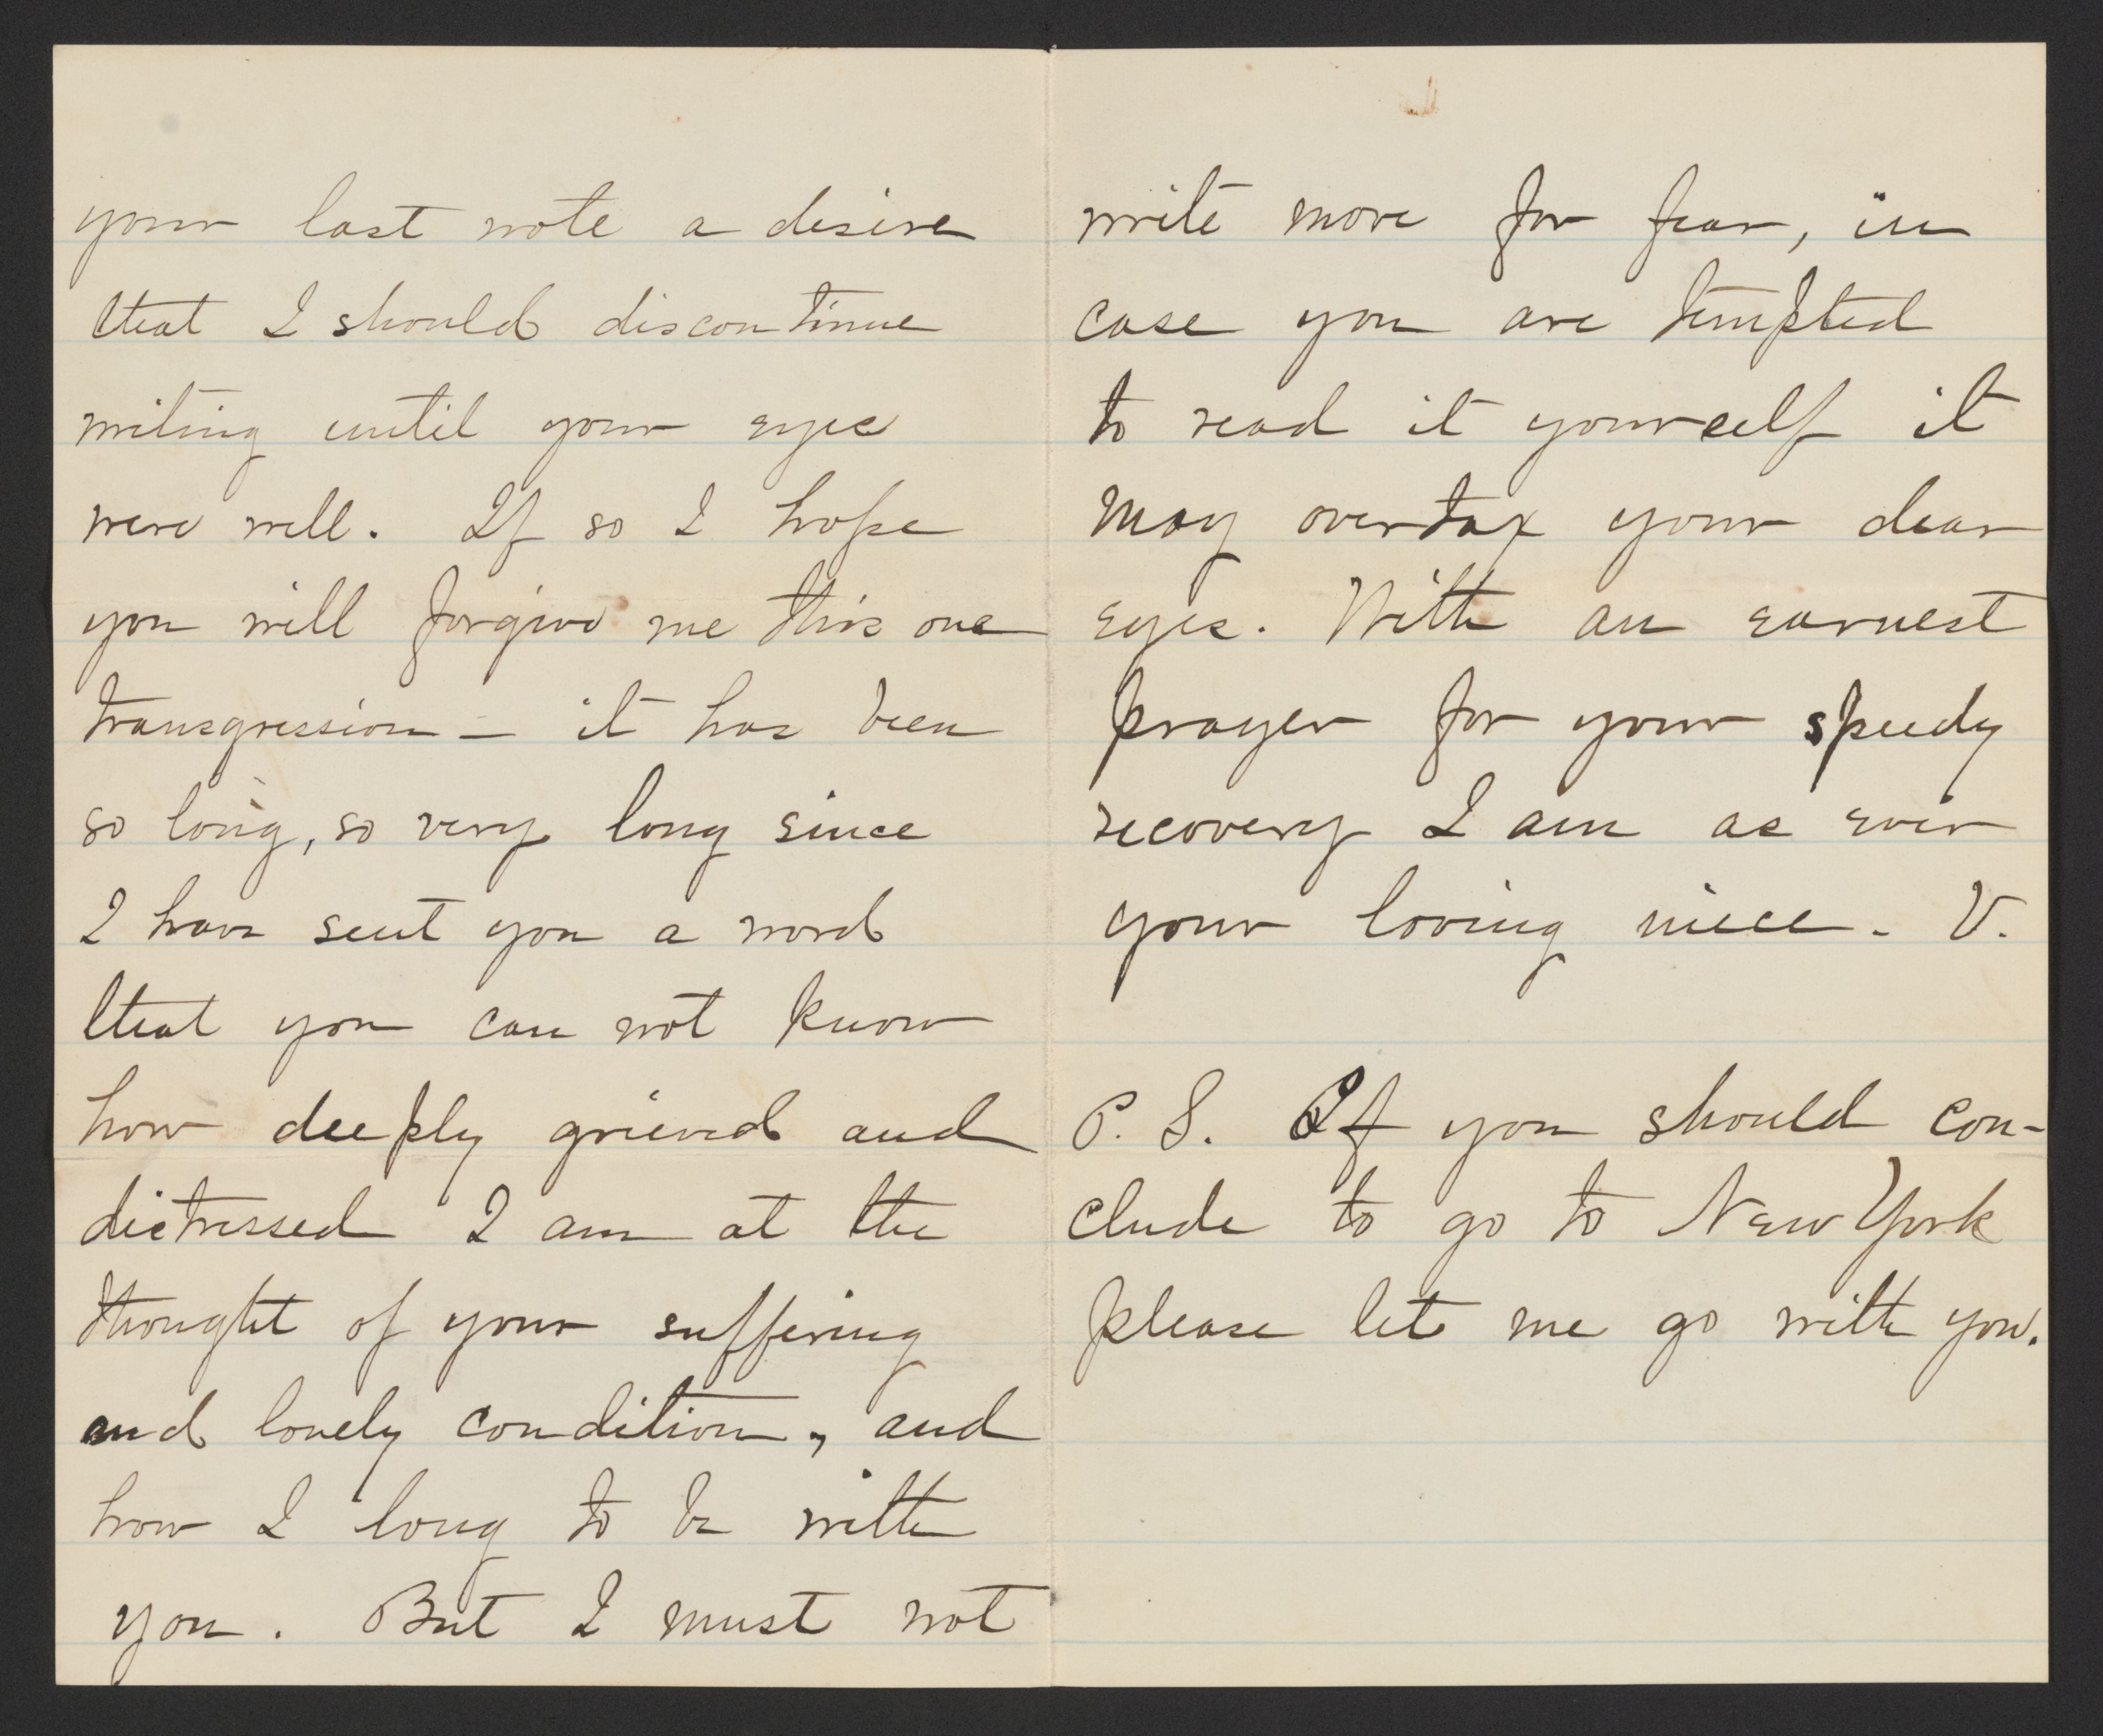 your last note a desire
that I should discontinue
writing until your eyes
were well. If so I hope
you will forgive me this one
transgression - it has been
so long, so very long since
I have sent you a word
that you can not know
how deeply grieved and
distressed I am at the
thought of your suffering
and lonely condition, and
how I long to be with
you. But I must not
write more for fear, in
case you are tempted
to read it yourself it
may overtax your dear
eyes. With an earnest
prayer for your speedy
recovery I am as ever
your loving niece. V.
P. S. If you should con-
clude to go to New York
please let me go with you.